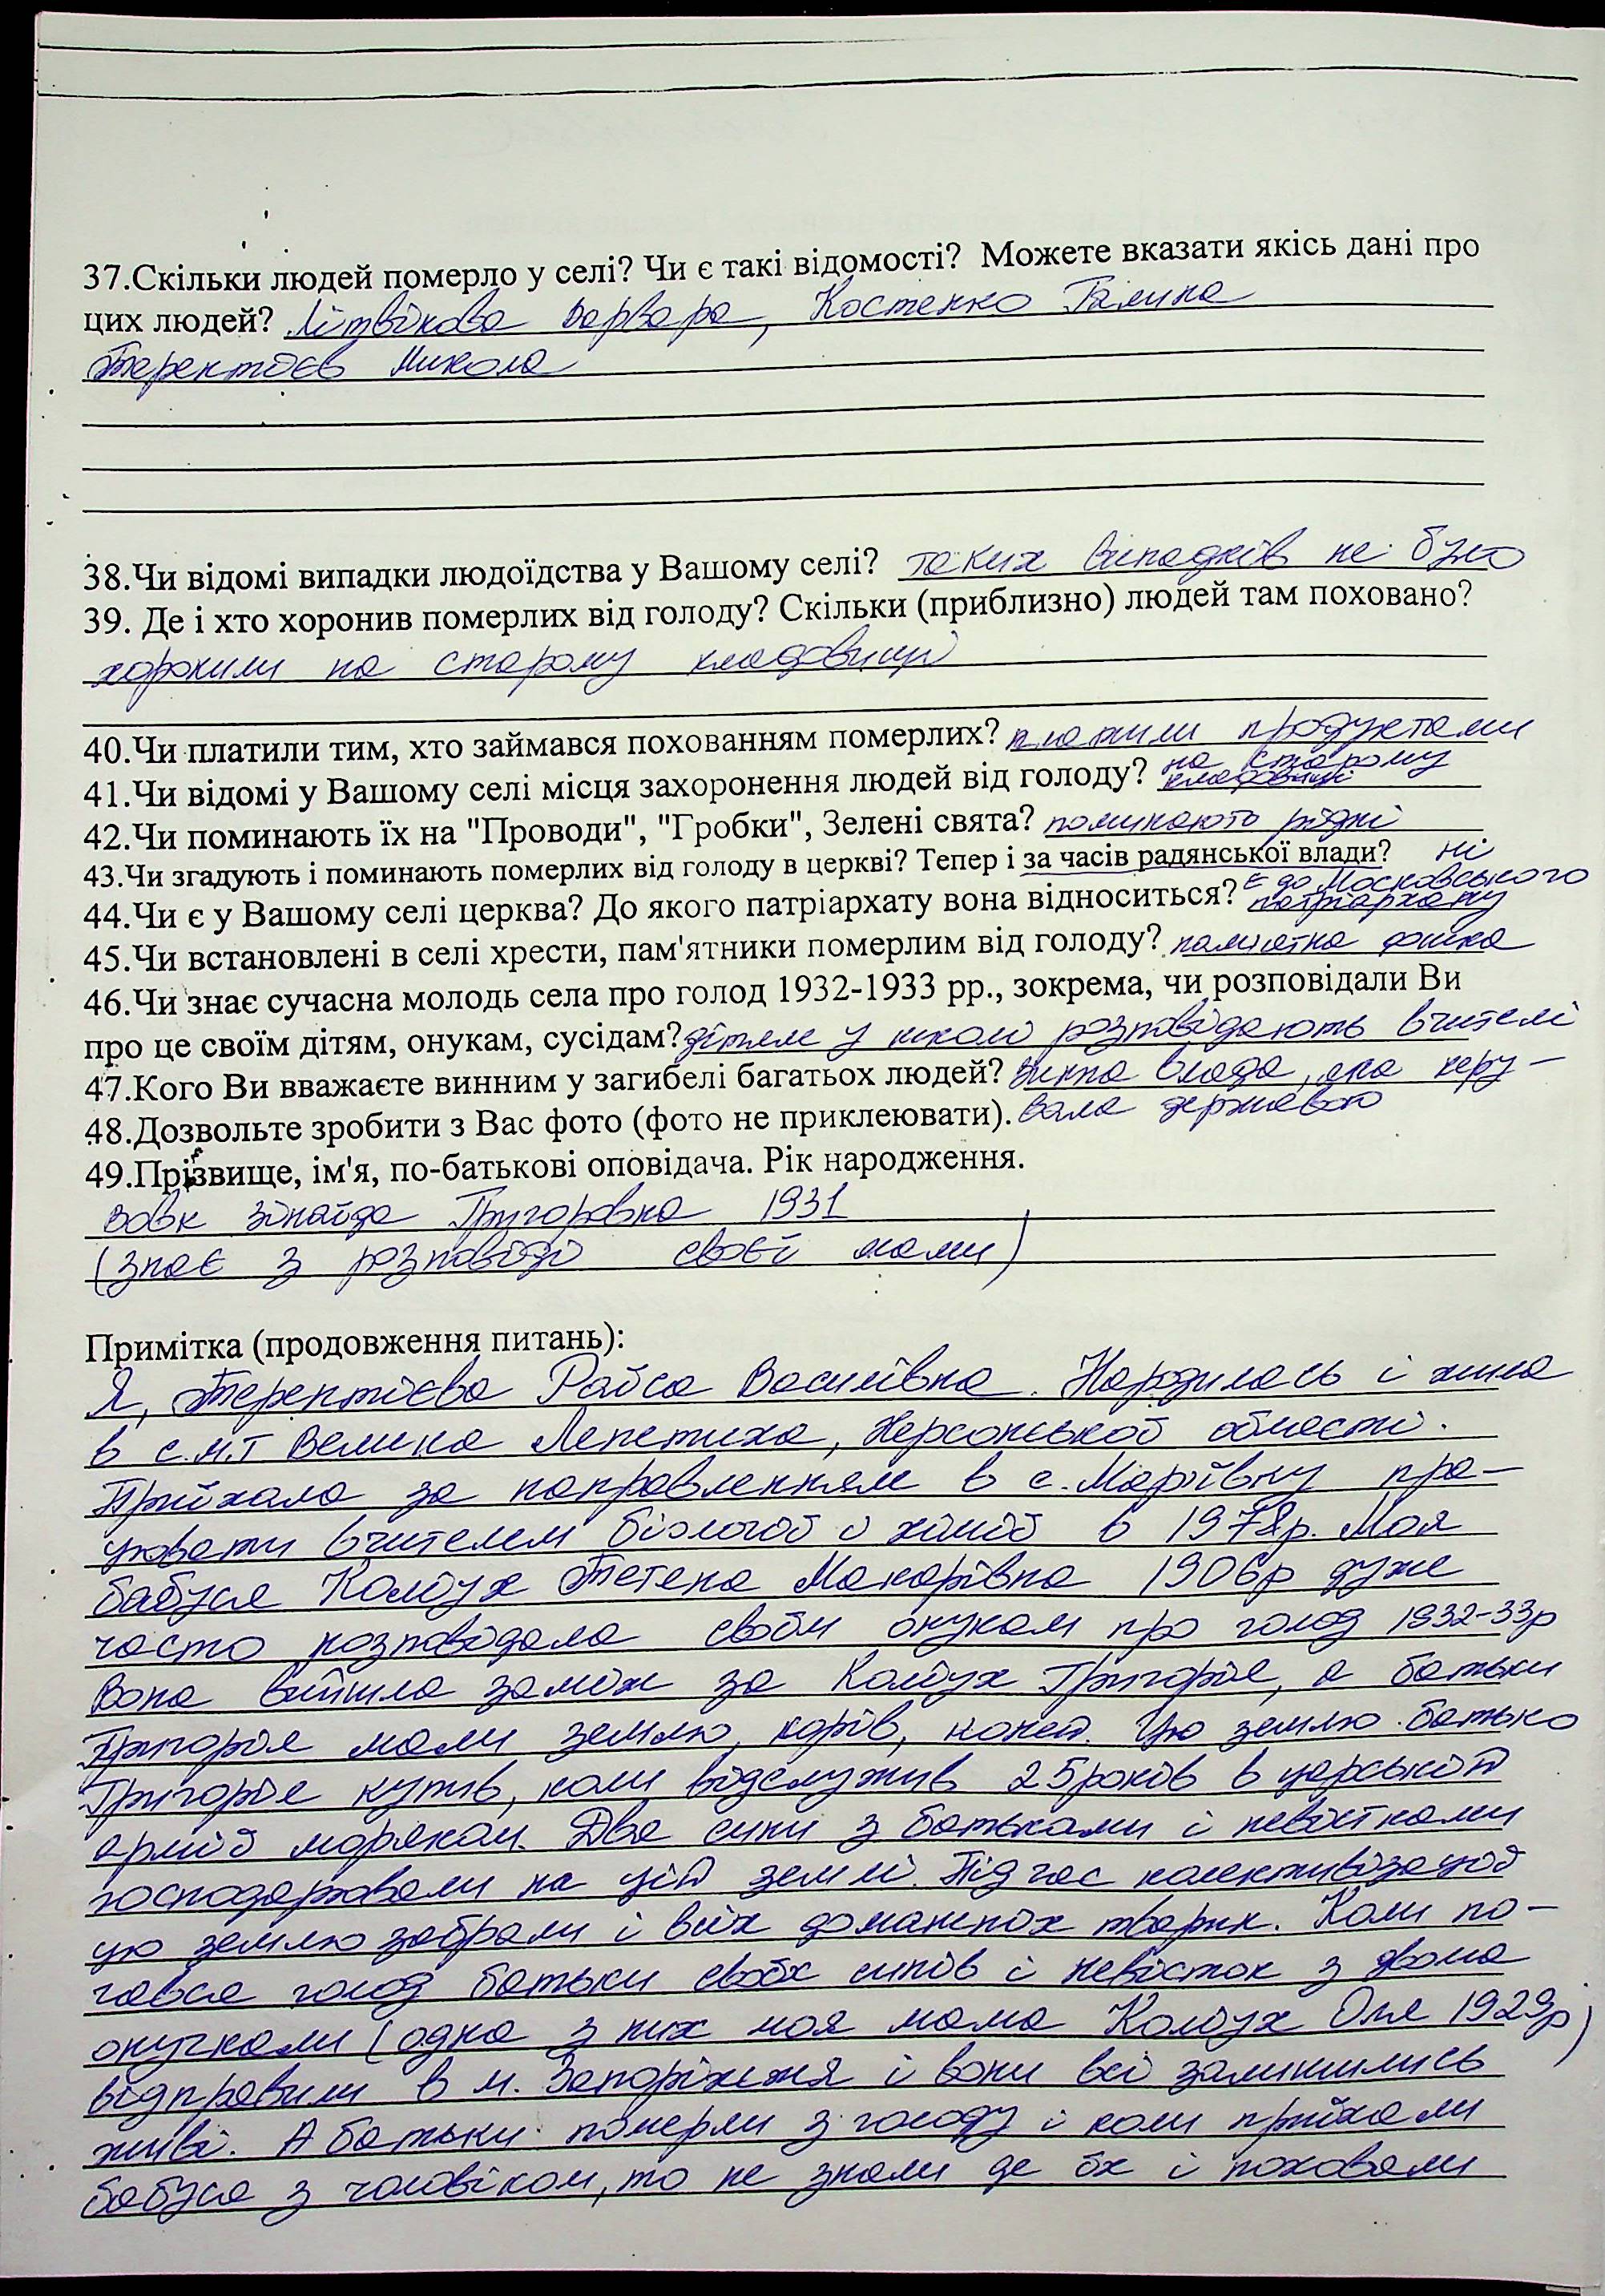 37.Скільки людей померло у селі? Чи є такі відомості? Можете вказати якісь дані про
цих людей? Літвінова Варвара, Костенко Галина
Терентієв Микола
38.Чи відомі випадки людоїдства у Вашому селі? таких випадків не було
39. Де і хто хоронив померлих від голоду? Скільки (приблизно) людей там поховано?
хоронили на старому кладовищі
40.Чи платили тим, хто займався похованням померлих? платили продуктами
41.Чи відомі у Вашому селі місця захоронення людей від голоду? на старому кладовищі
42.Чи поминають їх на "Проводи", "Гробки", Зелені свята? поминають рідні
43.Чи згадують і поминають померлих від голоду в церкві? Тепер і за часів радянської влади? ні
44.Чи є у Вашому селі церква? До якого патріархату вона відноситься? Є до Московського патріархату
45.Чи встановлені в селі хрести, пам'ятники померлим від голоду? памятна дошка
46.Чи знає сучасна молодь села про голод 1932-1933 рр., зокрема, чи розповідали Ви
про це своїм дітям, онукам, сусідам? дітям у школі розповідають вчителі
47.Кого Ви вважаєте винним у загибелі багатьох людей? винна влада, яка керу-
48.Дозвольте зробити з Вас фото (фото не приклеювати). вала державою
49.Прізвище, ім'я, по-батькові оповідача. Рік народження.
Вовк Зінаїда Григоровна 1931
(знає з розповіді своєї мами)
Примітка (продовження питань):
Я, Терентієва Раїса Василівна. Народилась і жила
в с.м.т Велика Лепетиха, Херсонської області.
Приїхала за направленням в с. Маріївку пра-
цювати вчителем біології і хімії в 1978р. Моя
бабуся Колбух Тетена Макарівна 1906р дуже
часто розповідала своїм онукам про голод 1932-33р
Вона вийшла заміж за Колбух Григорія, а батьки
Григорія мали землю, корів, коней. Цю землю батько
Григорія купив, коли відслужив 25 років в царській
армії моряком. Два сини з батьками і невістками
господарювали на цій землі. Під час колективізації
цю землю забрали і всіх домашніх тварин. Коли по-
чався голод батьки своїх синів і невісток з двома
онучками (одна з них моя мама Колбух Оля 1929р)
відправили в м. Запоріжжя і вони всі залишились
живі. А батьки померли з голоду і коли приїхали
бабуся з чоловіком, то не знали де їх і поховали